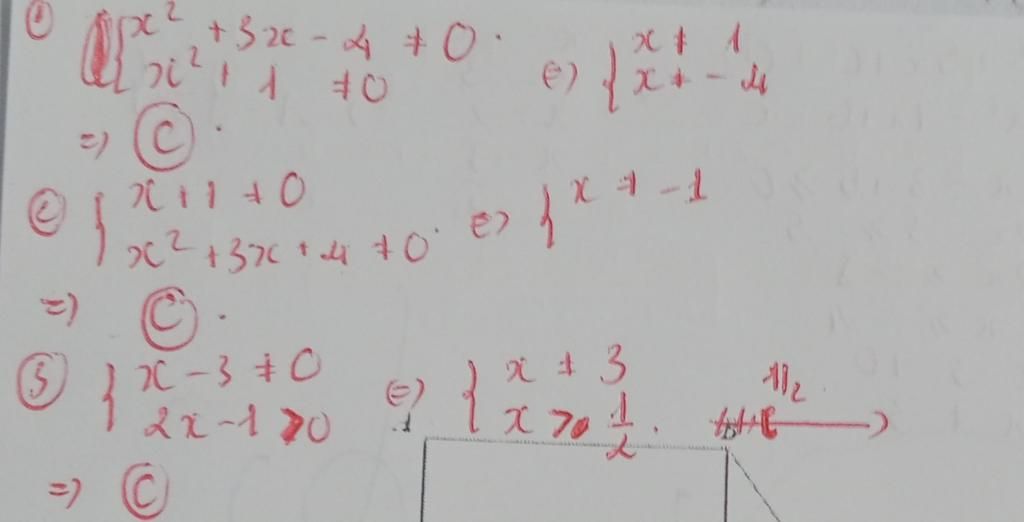 ① { x² + 3x - 4 ≠ 0.
x² + 1 ≠ 0 ⇔ { x ≠ 1
x ≠ -4
=> Ⓒ.
② { x + 1 ≠ 0
x² + 3x + 4 ≠ 0. ⇔ { x ≠ -1
=> Ⓒ.
③ { x - 3 ≠ 0
2x - 1 > 0 ⇔ { x ≠ 3
x > 1/2.
1/2
=> Ⓒ